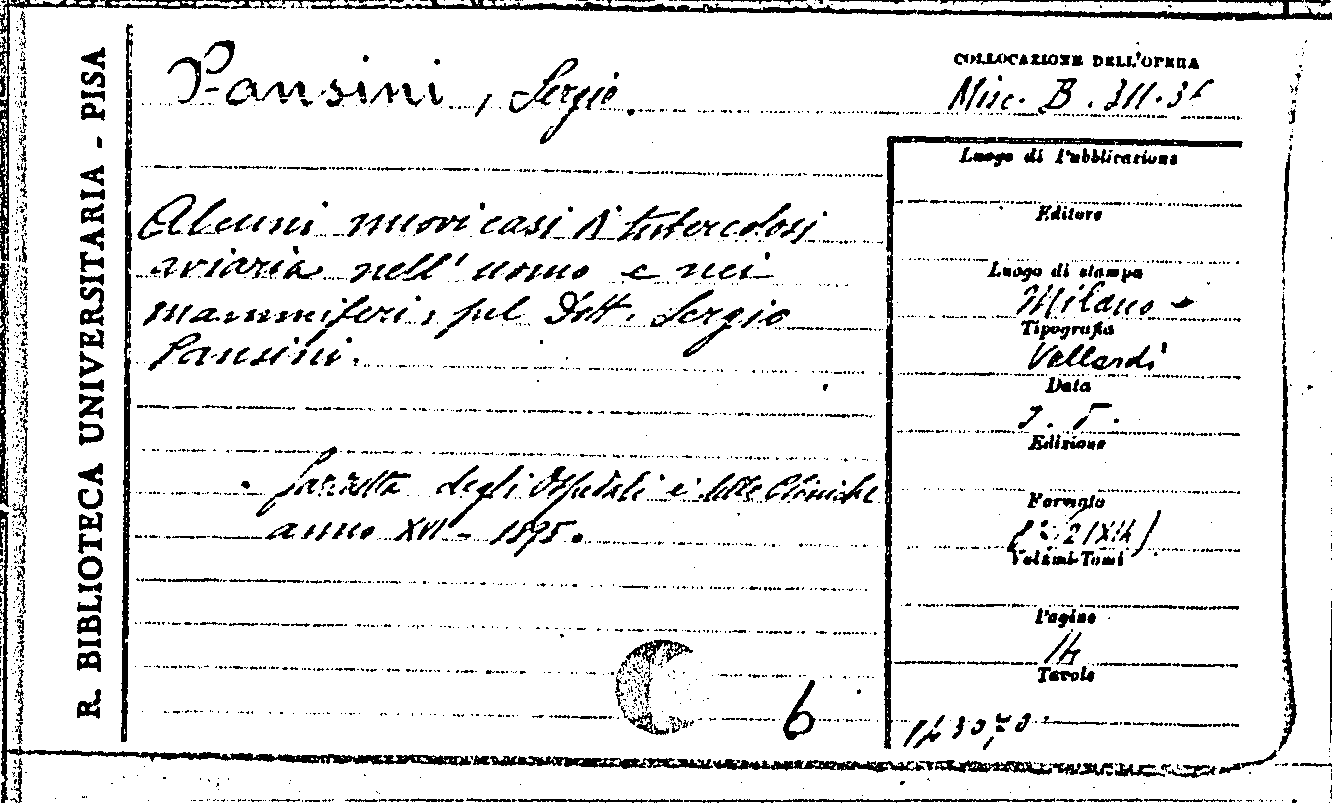 R. BIBLIOTECA UNIVERSITARIA - PISA
Pansini, Sergio.
COLLOCAZIONE DELL'OPERA
Misc. B. 311.
Alcuni nuovi casi di tubercolosi
aviaria nell'uomo e nei
mammiferi, pel Dott. Sergio
Pansini.
Gazzetta degli Ospedali e delle Cliniche
anno XVI - 1895.
6
Luogo di Pubblicazione
Editore
Luogo di stampa
Milano
Tipografia
Vallardi
Data
Edizione
Formato
Volumi-Tomi
Pagine
14
Tavole